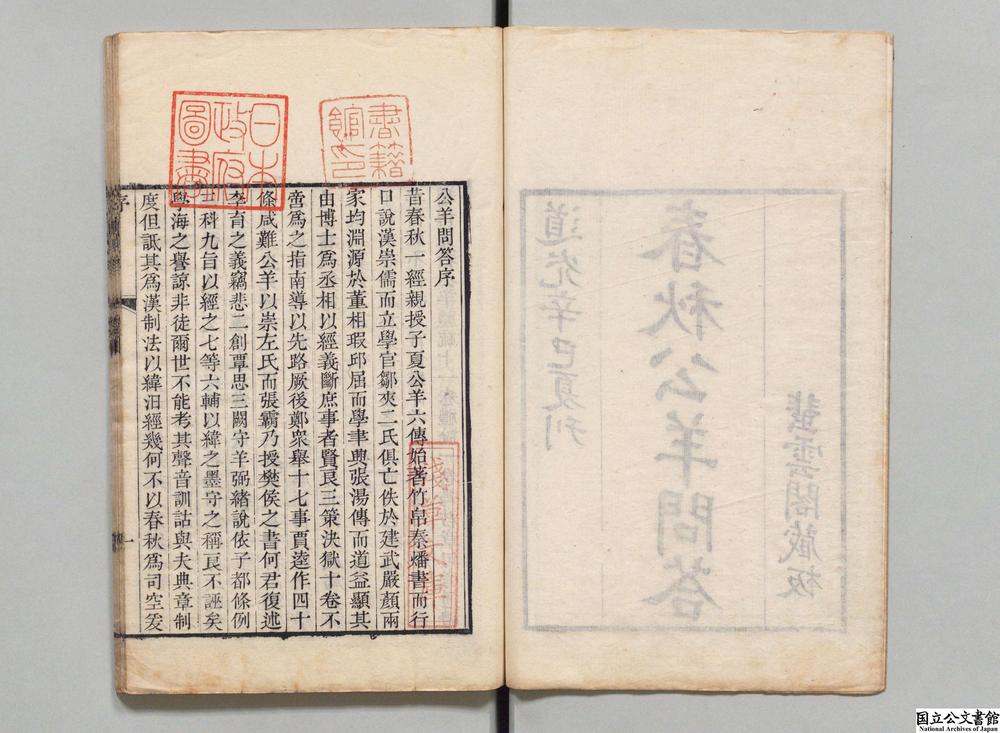 蜚雲閣藏板
春秋公羊問答
道光辛巳夏刊
書籍館印
日本政府圖書
公羊問答序
昔春秋一經親授子夏公羊六傳始著竹帛秦燔書而行
口說漢崇儒而立學官鄒夾二氏俱亡佚於建武嚴顏兩
家均淵源於董相瑕邱屈而學聿興張湯傳而道益顯其
由博士爲丞相以經義斷庶事者賢良三策決獄十卷不
啻爲之指南導以先路厥後鄭衆舉十七事賈逵作四十
條咸難公羊以崇左氏而張霸乃授樊侯之書何君復述
李育之義竊悲二創覃思三闕守羊弼緒說依子都條例
三科九旨以經之七等六輔以緯之墨守之稱良不誣矣
學海之譽諒非徒爾世不能考其聲音訓詁與夫典章制
度但詆其爲漢制法以緯汩經幾何不以春秋爲司空爰
序
一
国立公文書館
National Archives of Japan